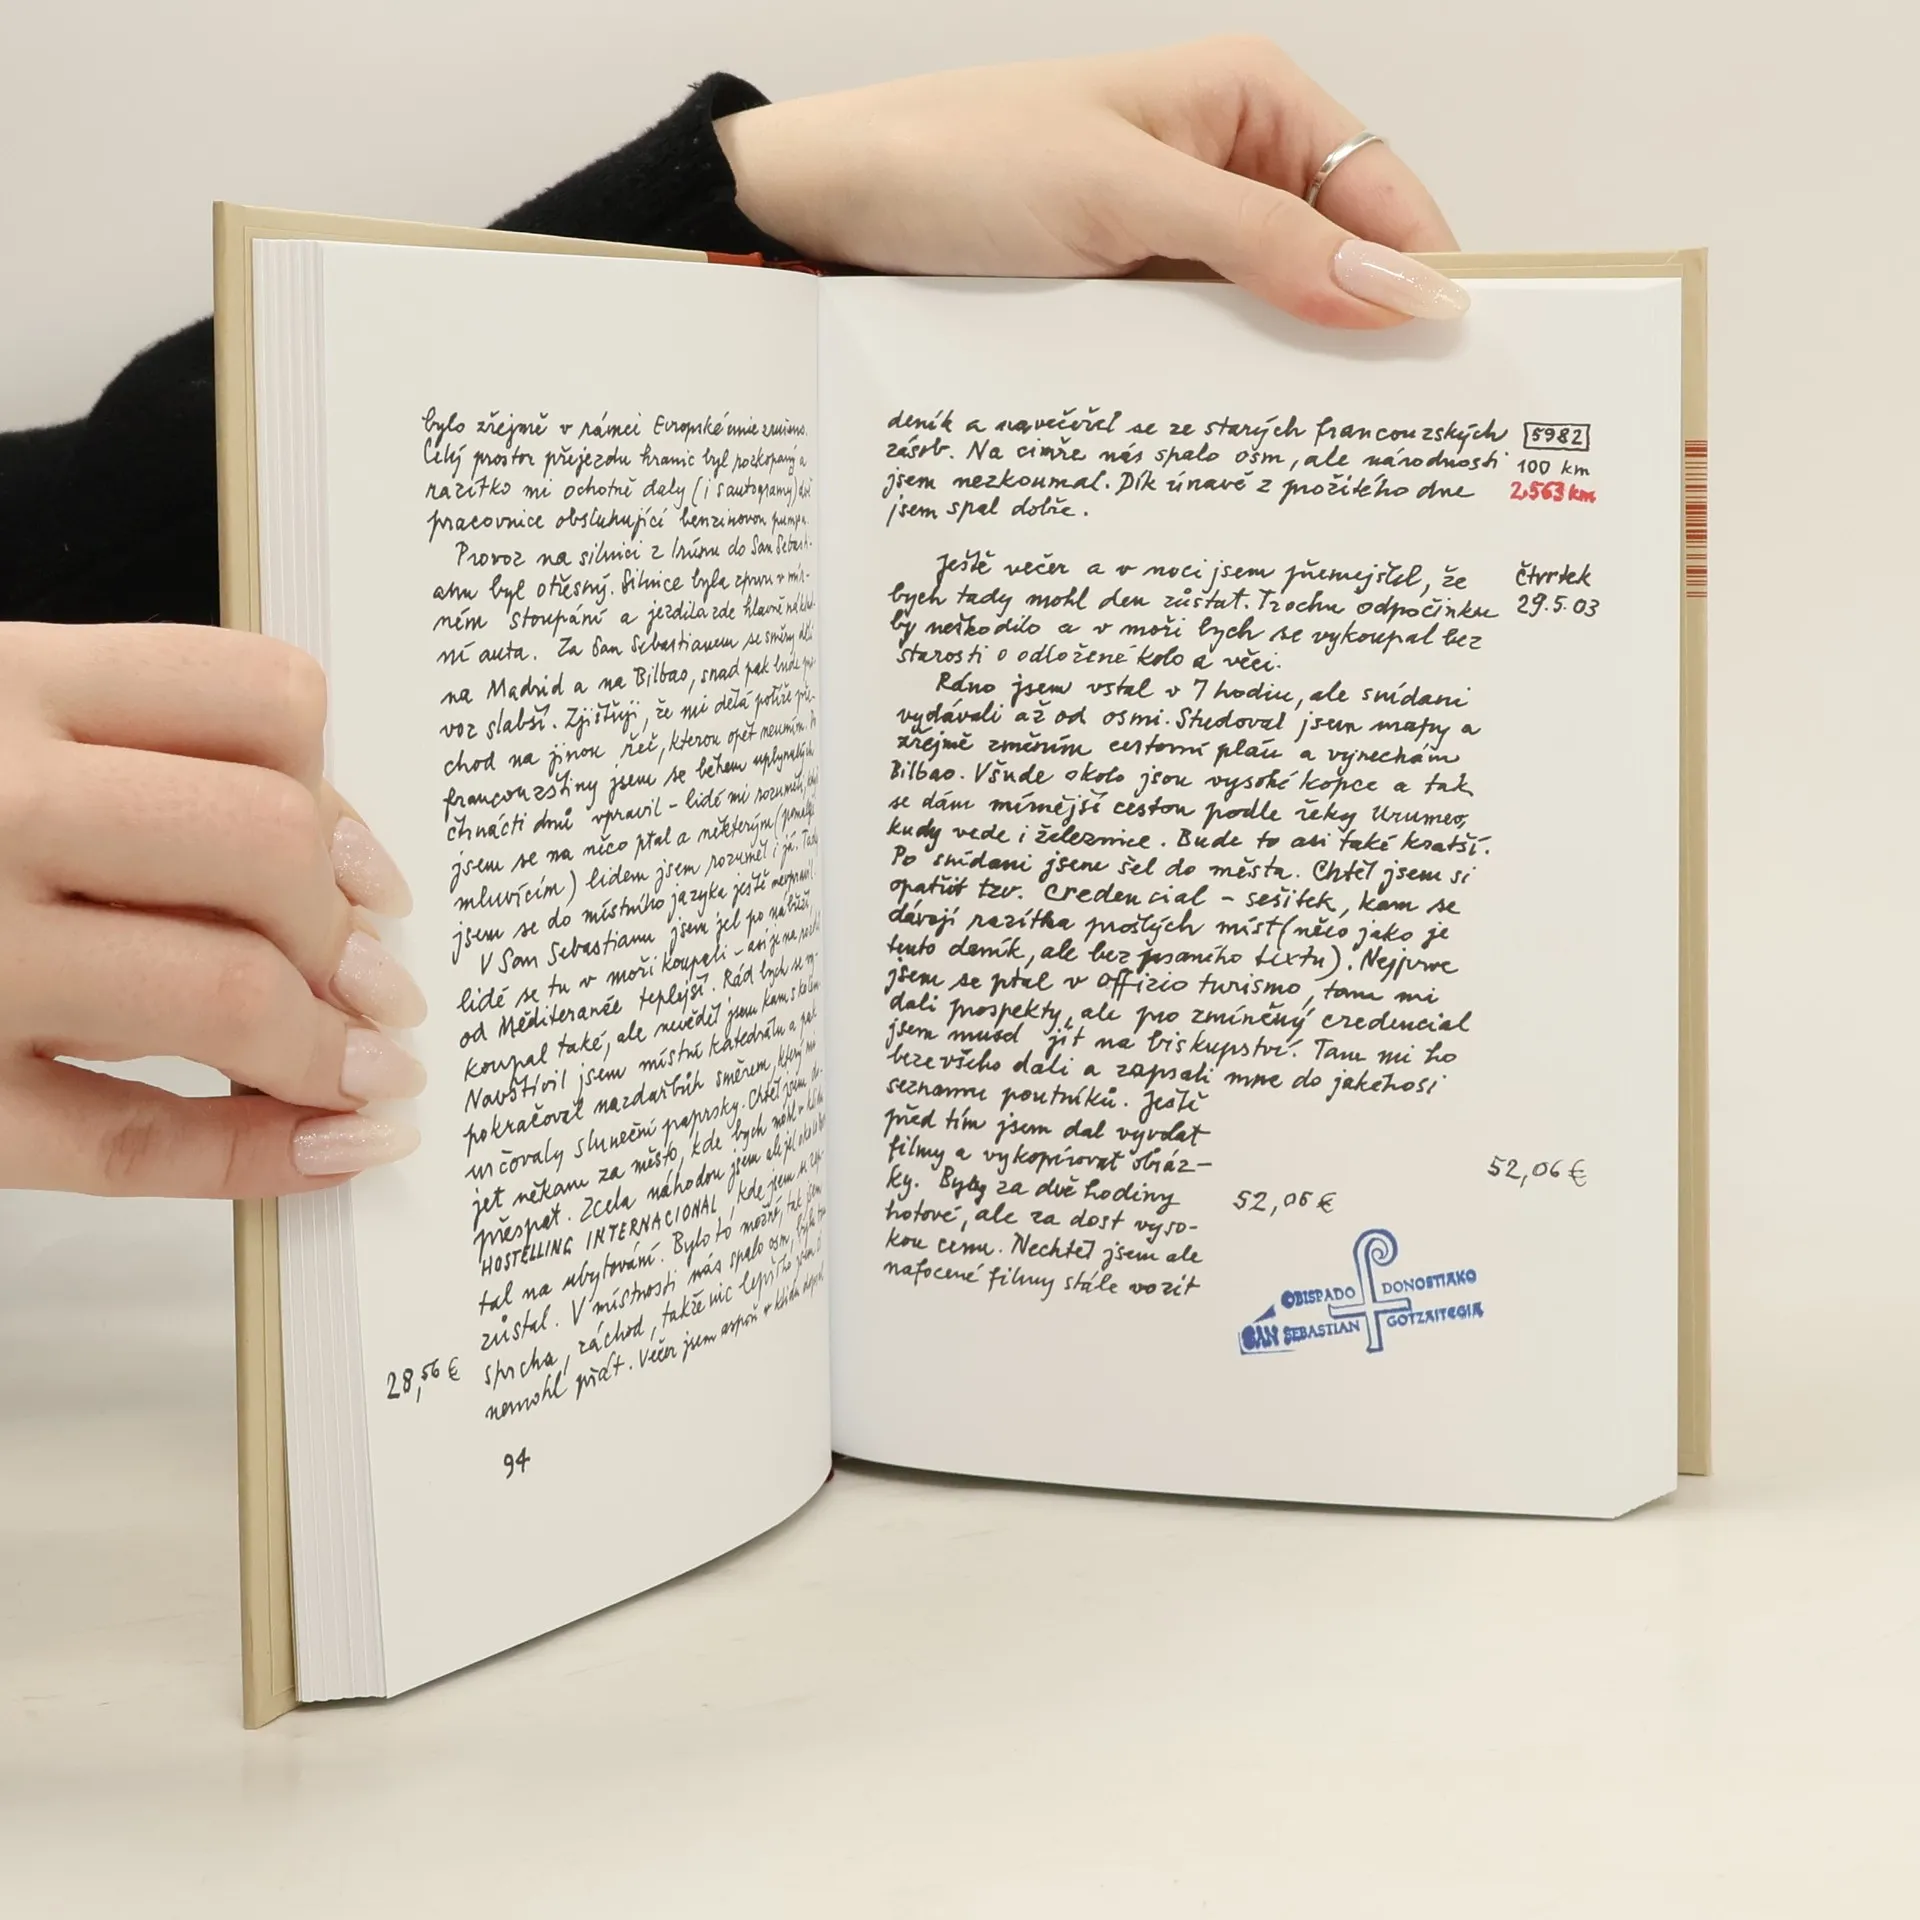 bylo zřejmě v rámci Evropské unie zrušeno.
Celý prostor přejezdu hranic byl rozkopaný a
razítko mi ochotně daly (i s autogramy) dvě
pracovnice obsluhující benzinovou pumpu.
Provoz na silnici z Irúnu do San Sebasti-
anu byl otřesný. Silnice byla zprvu v mír-
ném stoupání a jezdila zde hlavně náklad-
ní auta. Za San Sebastianem se směry dělí
na Madrid a na Bilbao, snad pak bude pro-
voz slabší. Zjišťuji, že mi dělá potíže pře-
chod na jinou řeč, kterou opět neumím. Do
francouzštiny jsem se během uplynulých
čtrnácti dnů vpravil – lidé mi rozuměli, když
jsem se na něco ptal a některým (pomaleji
mluvícím) lidem jsem rozuměl i já. Tady
jsem se do místního jazyka ještě nevpravil.
V San Sebastianu jsem jel po nábřeží,
lidé se tu v moři koupali – asi je na rozdíl
od Méditeranée teplejší. Rád bych se vy-
koupal také, ale nevěděl jsem kam s kolem.
Navštívil jsem místní katedrálu a pak
pokračoval nazdařbůh směrem, který mi
určovaly sluneční paprsky. Chtěl jsem do-
jet někam za město, kde bych mohl v klidu
přespat. Zcela náhodou jsem ale jel okolo
HOSTELLING INTERNACIONAL, kde jsem se zep-
tal na ubytování. Bylo to možné, tak jsem
zůstal. V místnosti nás spalo osm, byla tu
sprcha, záchod, takže nic lepšího jsem si
nemohl přát. Večer jsem aspoň v klidu dopsal
28,56 €
94
deník a navečeřel se ze starých francouzských
zásob. Na cimře nás spalo osm, ale národnosti
jsem nezkoumal. Dík únavě z prožitého dne
jsem spal dobře.
5982
100 km
2.563 km
Ještě večer a v noci jsem přemejšlel, že
bych tady mohl den zůstat. Trochu odpočinku
by neškodilo a v moři bych se vykoupal bez
starosti o odložené kolo a věci.
čtvrtek
29.5.03
Ráno jsem vstal v 7 hodin, ale snídani
vydávali až od osmi. Studoval jsem mapy a
zřejmě změním cestovní plán a vynechám
Bilbao. Všude okolo jsou vysoké kopce a tak
se dám mírnější cestou podle řeky Urumeo,
kudy vede i železnice. Bude to asi také kratší.
Po snídani jsem šel do města. Chtěl jsem si
opatřit tzv. Credencial – sešitek, kam se
dávají razítka prošlých míst (něco jako je
tento deník, ale bez psaního textu). Nejprve
jsem se ptal v Offizio turismo, tam mi
dali prospekty, ale pro zmíněný credencial
jsem musel jít na biskupství. Tam mi ho
beze všeho dali a zapsali mne do jakéhosi
seznamu poutníků. Ještě
před tím jsem dal vyvolat
filmy a vykopírovat obráz-
ky. Byly za dvě hodiny
hotové, ale za dost vyso-
kou cenu. Nechtěl jsem ale
nafocené filmy stále vozit
52,06 €
52,06 €
OBISPADO DONOSTIAKO
SAN SEBASTIAN GOTZAITEGIA